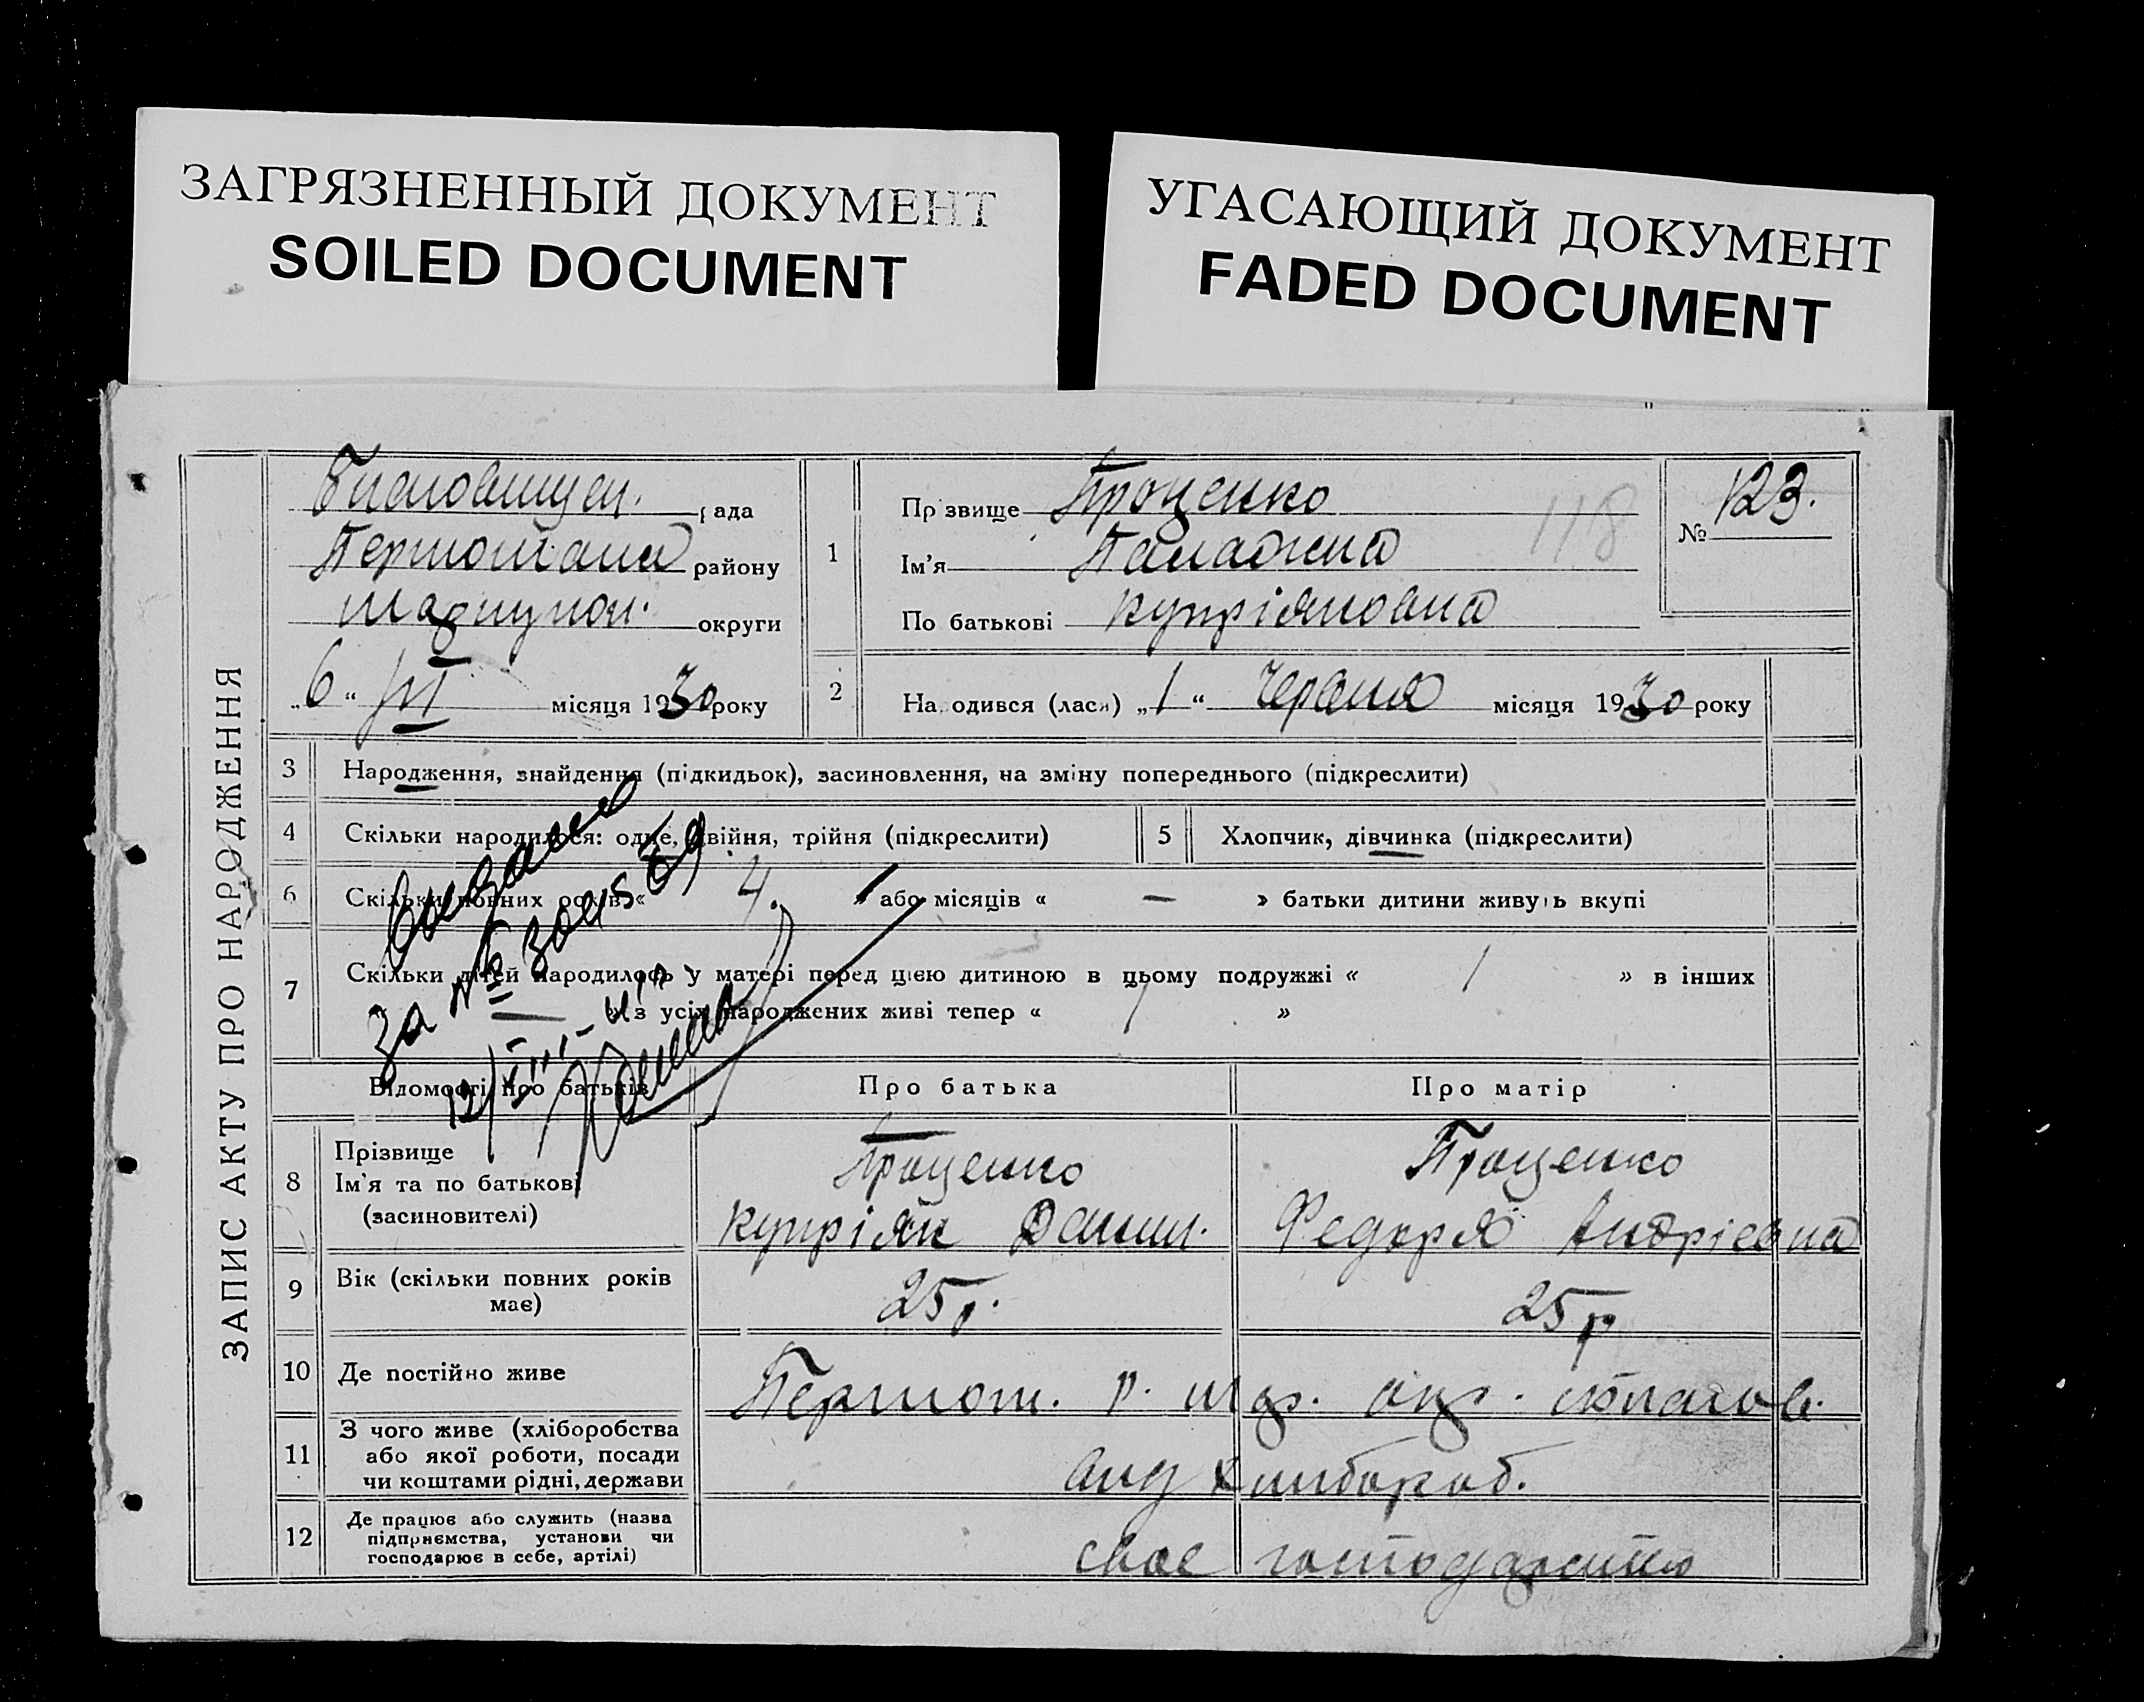 ЗАГРЯЗНЕННЫЙ ДОКУМЕНТ
SOILED DOCUMENT
УГАСАЮЩИЙ ДОКУМЕНТ
FADED DOCUMENT
ЗАПИС АКТУ ПРО НАРОДЖЕННЯ
рада
району
округи
„6“ місяця 1930 року
1
Прізвище Проценко
Ім'я
По батькові Купріяновна
118
№ 123.
2
Народився (лася) „1“ Червня місяця 1930 року
3 Народження, знайдення (підкидьок), засиновлення, на зміну попереднього (підкреслити)
4 Скільки народилося: одне, двійня, трійня (підкреслити)
5 Хлопчик, дівчинка (підкреслити)
6 Скільки повних років « 4. » або місяців « — » батьки дитини живуть вкупі
7 Скільки дітей народилось у матері перед цією дитиною в цьому подружжі « 1 » в інших
« — » з усіх народжених живі тепер « 1 »
За №
12/VIII
Відомості про батьків
Про батька
Про матір
8 Прізвище
Ім'я та по батькові
(засиновителі)
Проценко
Купріян Данил.
Проценко
Федора Андрієвна
9 Вік (скільки повних років
має)
25 р.
25 р
10 Де постійно живе
р. окр.
11 З чого живе (хліборобства
або якої роботи, посади
чи коштами рідні, держави
хлібороб.
12 Де працює або служить (назва
підприємства, установи чи
господарює в себе, артілі)
своє господарство